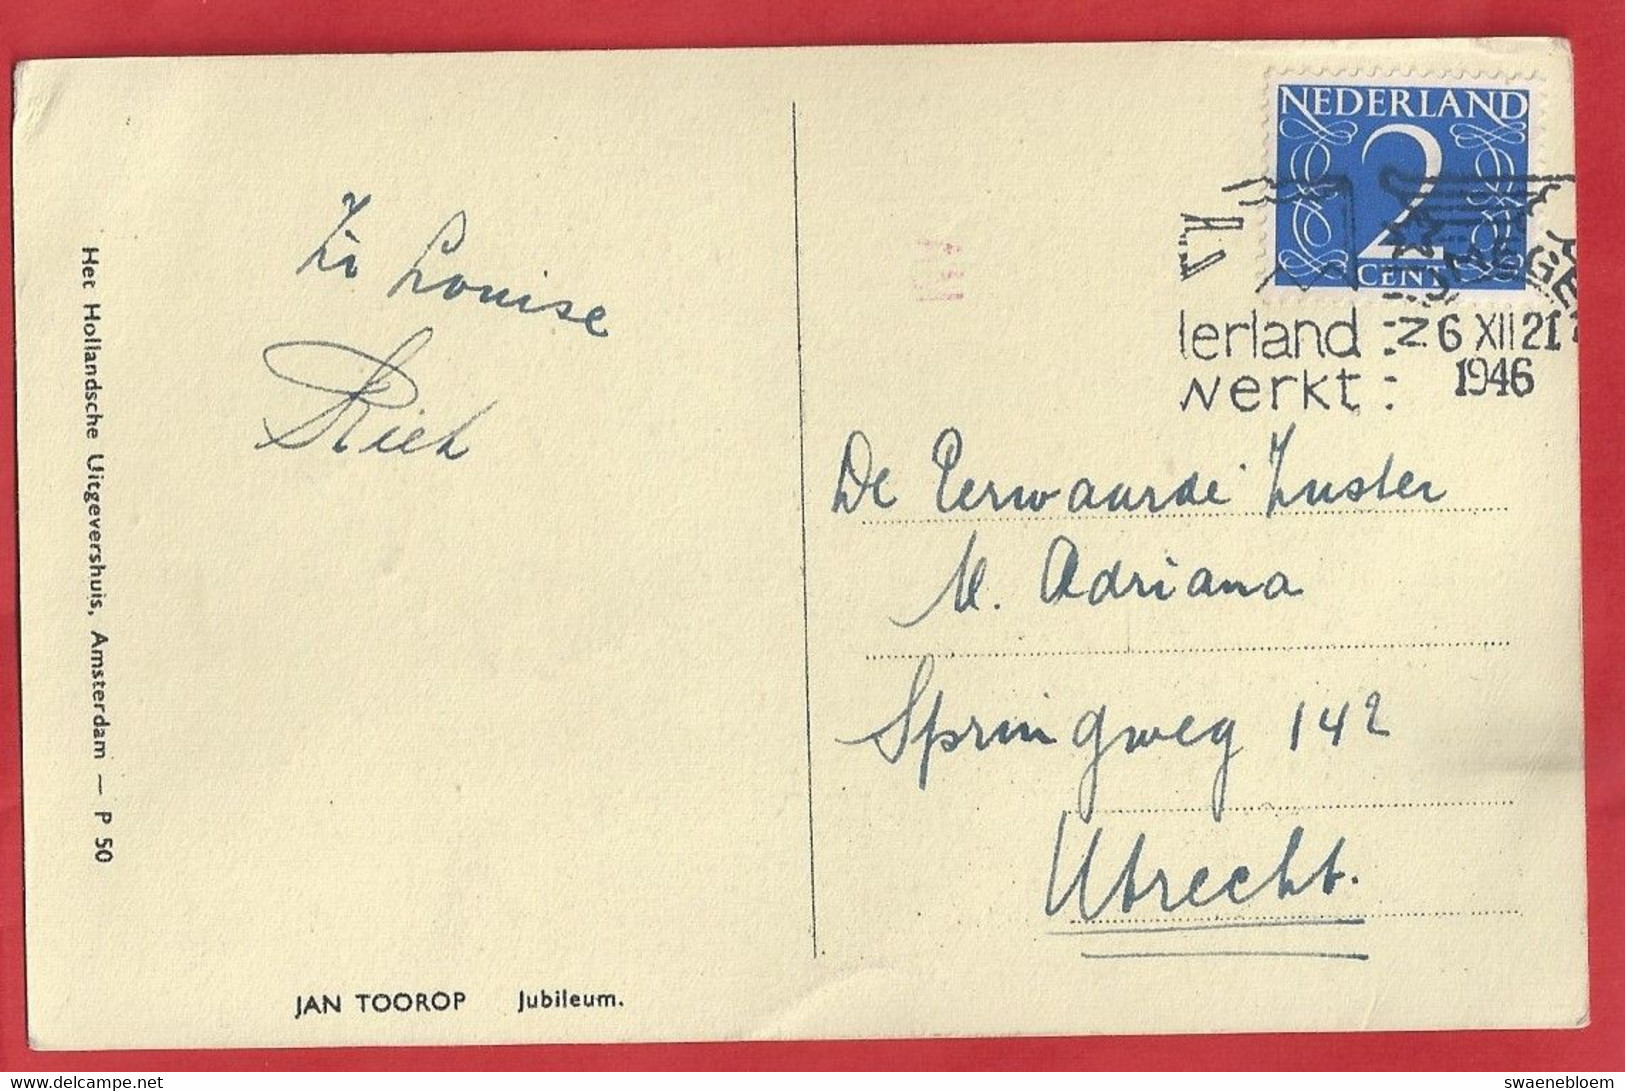 Het Hollandsche Uitgevershuis, Amsterdam — P 50
Zr Louise
JAN TOOROP Jubileum.
NEDERLAND
2
CENT
lerland
werkt
6 XII 21
1946
De Eerwaarde Zuster
M. Adriana
Springweg 142
Utrecht.
swaenebloem